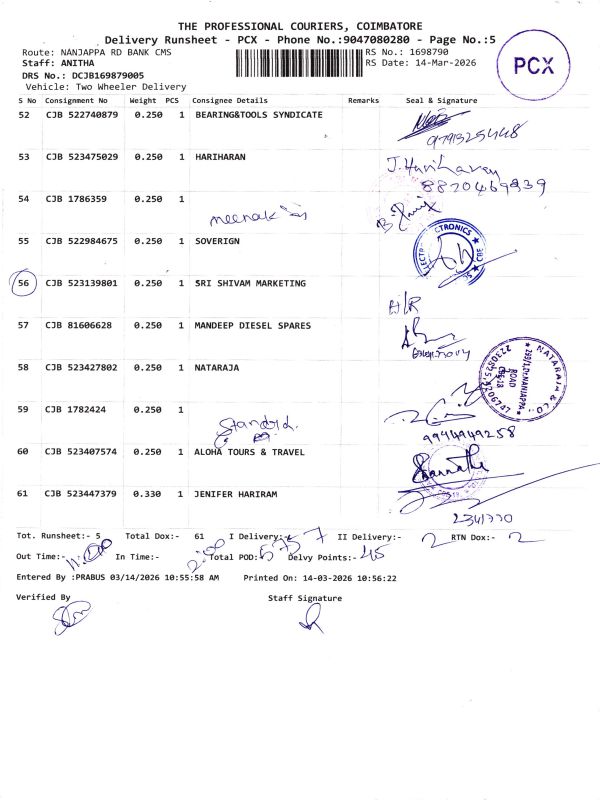 THE PROFESSIONAL COURIERS, COIMBATORE
Delivery Runsheet - PCX - Phone No.:9047080280 - Page No.:5
Route: NANJAPPA RD BANK CMS
RS No.: 1698790
Staff: ANITHA
RS Date: 14-Mar-2026
PCX
DRS No.: DCJB169879005
Vehicle: Two Wheeler Delivery
S No Consignment No Weight PCS Consignee Details Remarks Seal & Signature
52 CJB 522740879 0.250 1 BEARING&TOOLS SYNDICATE
53 CJB 523475029 0.250 1 HARIHARAN
J. Hariharan
8820469939
54 CJB 1786359 0.250 1
55 CJB 522984675 0.250 1 SOVERIGN
56 CJB 523139801 0.250 1 SRI SHIVAM MARKETING
57 CJB 81606628 0.250 1 MANDEEP DIESEL SPARES
58 CJB 523427802 0.250 1 NATARAJA
NATARAJA & CO.
ROAD
59 CJB 1782424 0.250 1
9994949258
60 CJB 523407574 0.250 1 ALOHA TOURS & TRAVEL
61 CJB 523447379 0.330 1 JENIFER HARIRAM
2341770
Tot. Runsheet:- 5 Total Dox:- 61 I Delivery:- 57 II Delivery:- 2 RTN Dox:- 2
Out Time:- 11.00 In Time:- 2:00 Total POD: 57 Delvy Points:- 45
Entered By :PRABUS 03/14/2026 10:55:58 AM Printed On: 14-03-2026 10:56:22
Verified By Staff Signature